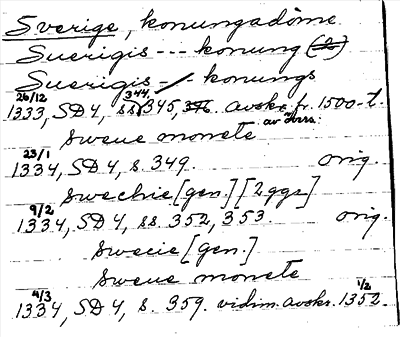 Sverige, konungadöme
Suerigis --- konung (2)
Suerigis - konungs
26/12 1333, SD 4, ss. 344, 345, 376. avskr. av Örns. fr. 1500-t.
sweue monete
23/1 1334, SD 4, s. 349. orig.
swechie [gen.] [2ggr]
9/2 1334, SD 4, ss. 352, 353. orig.
swecie [gen.]
sweue monete
4/3 1334, SD 4, s. 359. vidim. avskr. 1/2 1352.